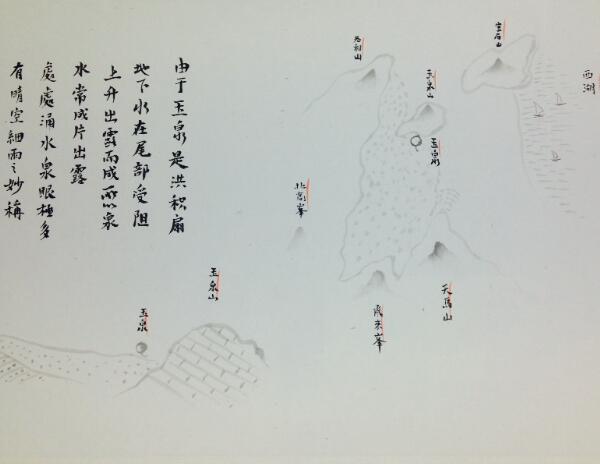 西湖
宝石山
玉泉山
玉泉
老和山
天馬山
飛来峯
北高峯
玉泉山
玉泉
由于玉泉是洪积扇
地下水在尾部受阻
上升出露而成所以泉
水常成片出露
處處涌水泉眼極多
有晴空細雨之妙稱